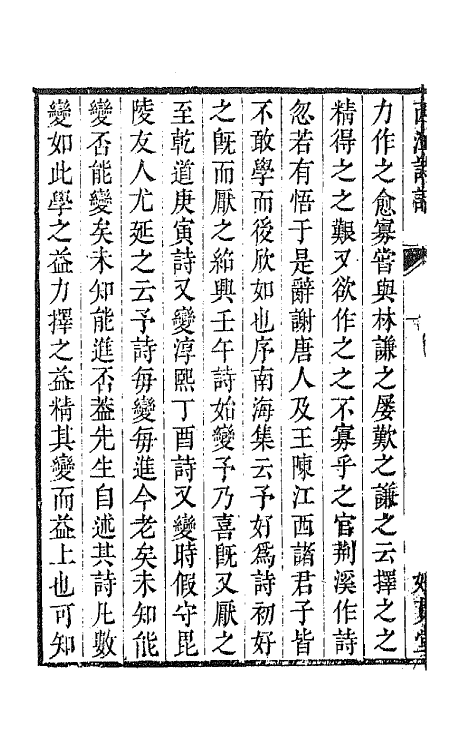 力作之愈寡嘗與林謙之屡歎之謙之云擇之之
精得之之艱又欲作之之不寡乎之官荆溪作詩
忽若有悟于是辭謝唐人及王陳江西諸君子皆
不敢學而後欣如也序南海集云予好爲詩初好
之旣而厭之紹興壬午詩始變予乃喜旣又厭之
至乾道庚寅詩又變淳熙丁酉詩又變時假守毘
陵友人尤延之云予詩每變每進今老矣未知能
變否能變矣未知能進否葢先生自述其詩凡數
變如此學之益力擇之益精其變而益上也可知